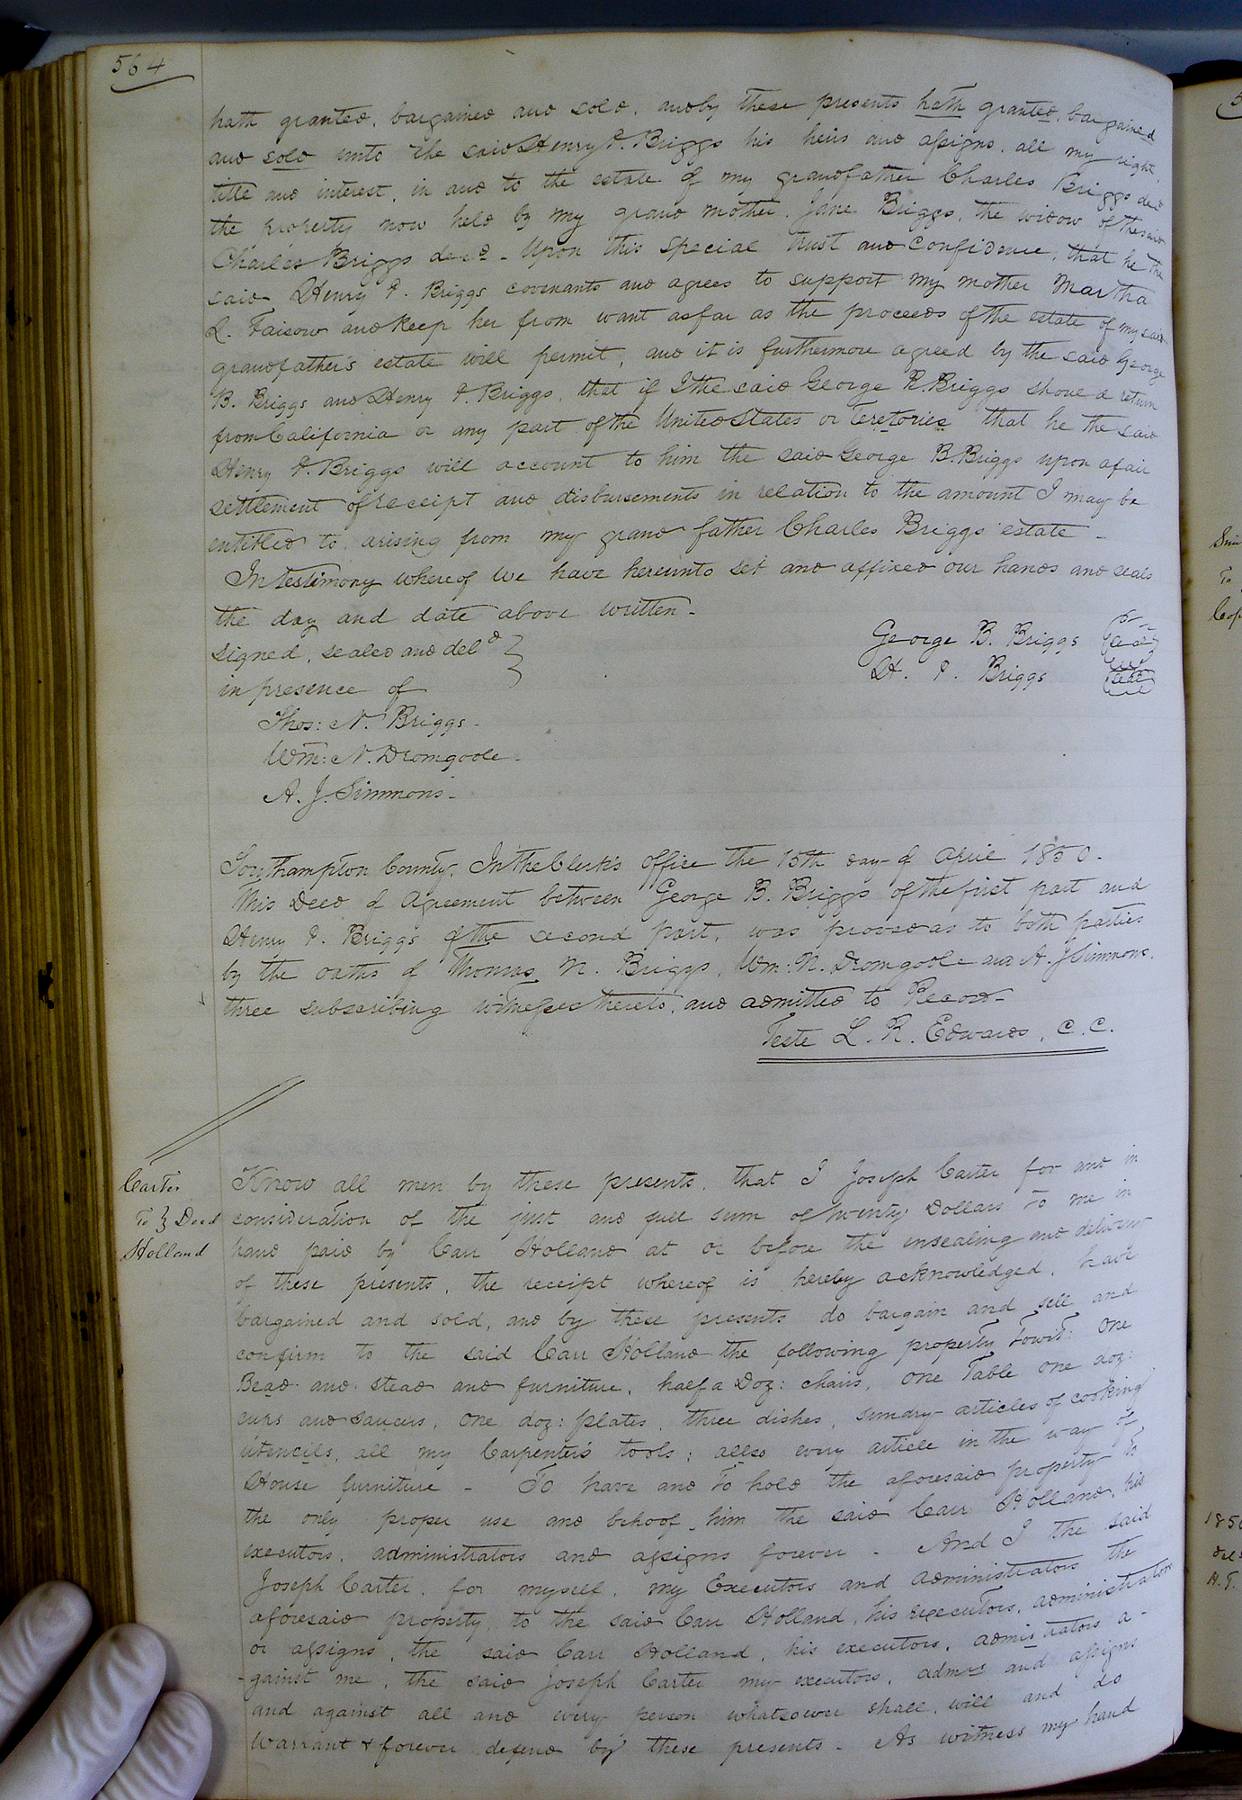 564
hath granted, bargained and sold, and by these presents hath granted, bargained
and sold unto the said Henry P. Briggs his heirs and assigns, all my right,
title and interest, in and to the estate of my grandfather Charles Briggs decd
the property now held by my grand mother, Jane Briggs, the widow of the said
Charles Briggs decd - Upon this special trust and confidence, that he the
said Henry P. Briggs covenants and agrees to support my mother Martha
L. Faison and keep her from want as far as the proceeds of the estate of my said
grandfather's estate will permit, and it is furthermore agreed by the said George
B. Briggs and Henry P. Briggs, that if I the said George R. Briggs should return
from California or any part of the United States or Teretories that he the said
Henry P. Briggs will account to him the said George B. Briggs upon a fair
settlement of receipt and disbursements in relation to the amount I may be
entitled to arising from my grand father Charles Briggs estate -
In testimony whereof we have hereunto set and affixed our hands and seals
the day and date above written -
signed, sealed and deld }
in presence of
George B. Briggs Seal
H. P. Briggs Seal
Thos: N. Briggs -
Wm: N. Dromgoole -
A. J. Simmons -
Southampton County, In the Clerk's Office the 15th day of April 1850 -
This Deed of Agreement between George B. Briggs of the first part and
Henry P. Briggs of the second part, was proved as to both parties
by the oaths of Thomas N. Briggs, Wm: N. Dromgoole and A. J Simmons,
three subscribing witnesses thereto, and admitted to Record -
Teste L. R. Edwards, C. C.
Carter
To } Deed
Holland
Know all men by these presents, that I Joseph Carter for and in
consideration of the just and full sum of twenty Dollars to me in
hand paid by Carr Holland at or before the ensealing and delivery
of these presents, the receipt whereof is hereby acknowledged, have
bargained and sold, and by these presents do bargain and sell and
confirm to the said Carr Holland the following property Towit: One
Bead and stead and furniture, half a Doz: chairs, One Table one doz:
cups and saucers, one doz: plates, three dishes, sundry articles of cooking
utencils, all my Carpenter's tools; allso every article in the way of
House furniture - To have and to hold the aforesaid property to
the only proper use and behoof, him the said Carr Holland, his
executors, administrators and assigns forever - And I the said
Joseph Carter, for myself, my Executors and administrators the
aforesaid property to the said Carr Holland, his executors, administrators
or assigns, the said Carr Holland, his executors, admistrators a-
gainst me, the said Joseph Carter my executors, admrs and assigns
and against all and every person whatsoever shall, will and do
warrant & forever defend by these presents - As witness my hand